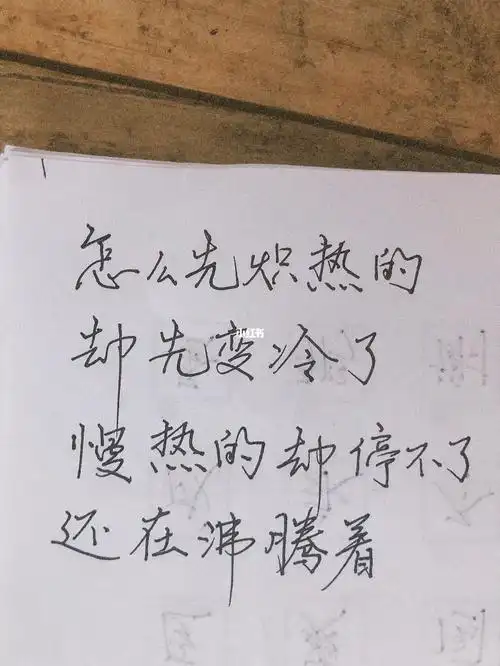 怎么先炽热的
小红书
却先变冷了
慢热的却停不了
还在沸腾着